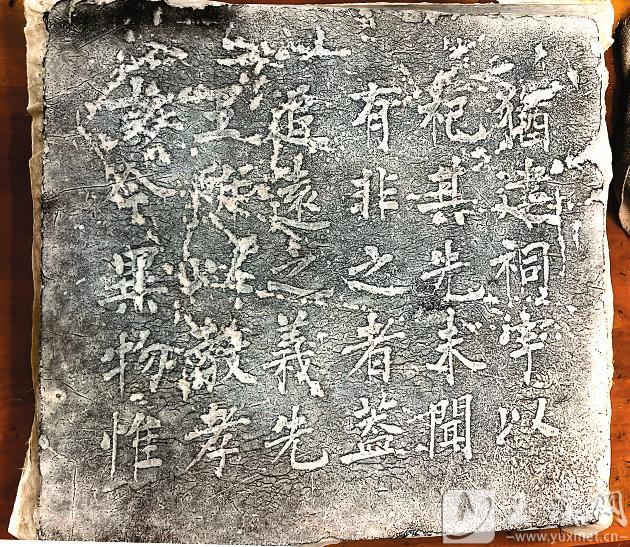 猶建祠宇以
祀其先未聞
有非之者蓋
追遠之義先
王以孝
祭異物惟
玉溪网
www.yuxinet.cn